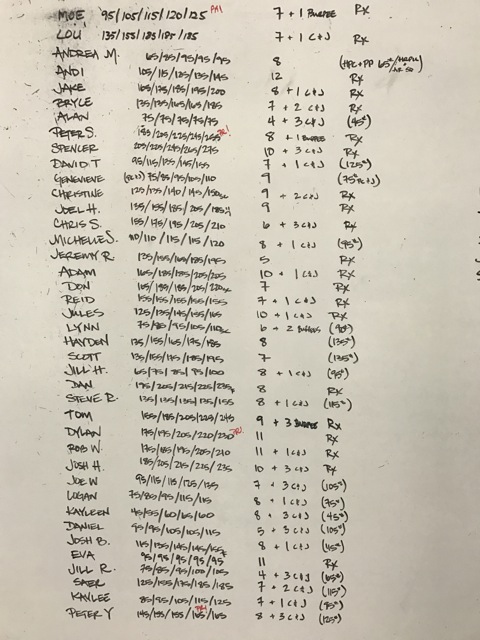 MOE 95/105/115/120/125 PR! 7 + 1 BURPEE Rx
LOU 135/155/185/185/185 7 + 1 C+J Rx
ANDREA M. 65/85/95/95/95 8 (HPC+PP 65#
ANDI 105/115/125/135/145 12 Rx
JAKE 165/175/185/195/200 8 + 1 C+J Rx
BRYCE 135/135/165/165/185 7 + 2 C+J Rx
ALAN 75/75/75/75/75 4 + 3 C+J (45#)
PETER S. 185/205/225/245/265 PR! 8 + 1 BURPEE Rx
SPENCER 205/205/245/265/275 10 + 3 C+J Rx
DAVID T 95/115/135/145/155 7 + 1 C+J (125#)
GENEVIEVE 75/85/95/105/110 9 (75# C+J)
CHRISTINE 125/135/140/145/150 9 + 2 C+J Rx
JOEL H. 135/155/185/205/185 9 Rx
CHRIS S. 155/175/195/205/210 6 + 3 C+J Rx
MICHELLE S. 110/110/115/115/120 8 + 1 C+J (95#)
JEREMY R. 135/155/165/185/195 5 Rx
ADAM 165/185/195/205/205 10 + 1 C+J Rx
DON 165/185/185/205/220 7 Rx
REID 155/155/155/155/155 7 + 1 C+J Rx
JULES 125/135/145/155/165 10 + 1 C+J Rx
LYNN 75/85/95/105/110 6 + 2 BURPEES
HAYDEN 135/155/165/175/185 8 (135#)
SCOTT 135/155/175/185/195 7 (135#)
JILL H. 65/75/85/95/100 8 + 1 C+J (95#)
DAN 195/205/215/225/235 8 Rx
STEVE R. 135/135/135/135/155 8 + 1 C+J (115#)
TOM 165/185/205/225/245 9 + 3 BURPEES Rx
DYLAN 175/195/205/220/230 PR! 11 Rx
ROB W. 175/185/195/205/210 11 + 1 C+J Rx
JOSH H. 185/205/215/225/235 10 + 3 C+J Rx
JOE W 95/115/115/125/135 7 + 3 C+J (105#)
LOGAN 75/80/95/115/115 8 + 1 C+J (75#)
KAYLEEN 45/55/60/65/60 8 + 3 C+J (45#)
DANIEL 95/95/105/105/115 5 + 3 C+J (105#)
JOSH B. 115/135/145/145/155 8 + 1 C+J (115#)
EVA 95/95/95/95/95 11 Rx
JILL R. 75/85/95/100/105 4 + 3 C+J (65#)
SAER 125/155/175/185/185 7 + 2 C+J (115#)
KAYLEE 85/95/105/115/125 7 + 1 C+J (95#)
PETER Y 145/155/155/165/165 PR! 8 + 3 C+J (125#)